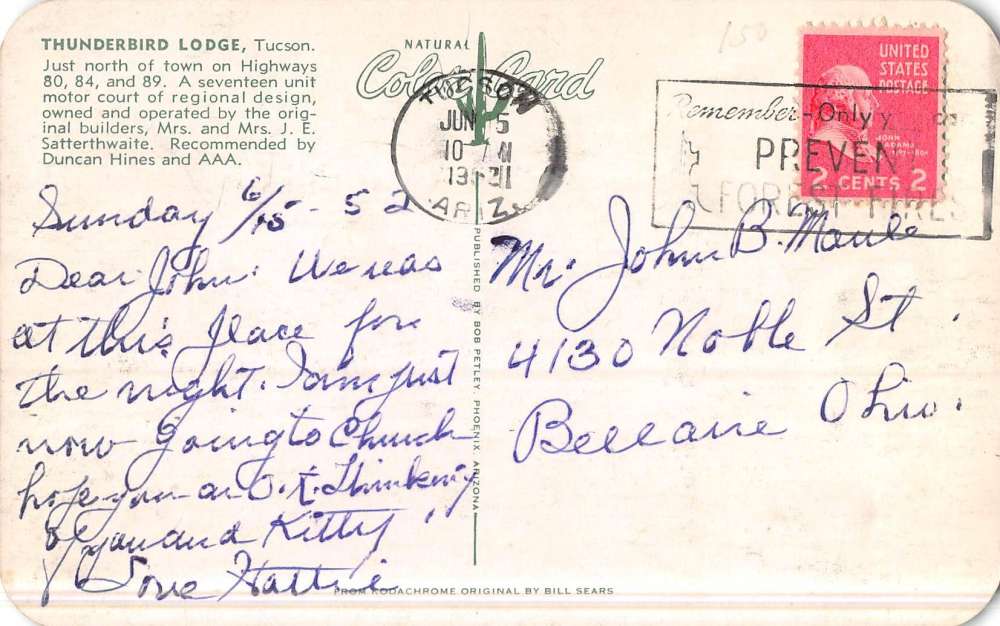 THUNDERBIRD LODGE, Tucson.
Just north of town on Highways
80, 84, and 89. A seventeen unit
motor court of regional design,
owned and operated by the orig-
inal builders, Mrs. and Mrs. J. E.
Satterthwaite. Recommended by
Duncan Hines and AAA.
NATURAL
Color Card
TUCSON
JUN 15
10
ARIZ.
150
Remember - Only
PREVENT
FOREST FIRES
UNITED
STATES
POSTAGE
JOHN
ADAMS
1797-1801
2 CENTS 2
Sunday 6/15 - 52
Dear John: We was
at this place for
the night. I am just
now going to Church
hope you are O.K. Thinking
of you and Kitty.
Love Hattie
Mr. John B. Maule
4130 Noble St.
Bellaire Ohio.
PUBLISHED BY BOB PETLEY, PHOENIX, ARIZONA
FROM KODACHROME ORIGINAL BY BILL SEARS